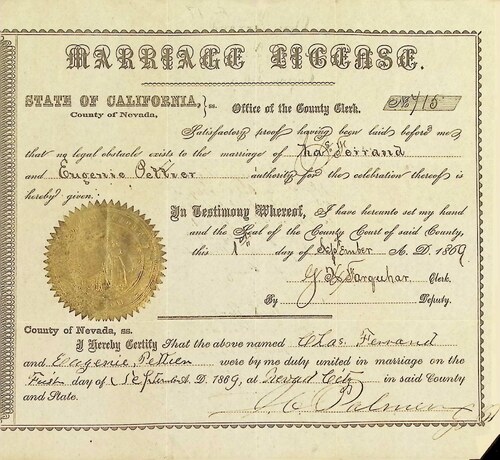 MARRIAGE LICENSE.
STATE OF CALIFORNIA, } ss. Office of the County Clerk.
County of Nevada,
Satisfactory proof having been laid before me
that no legal obstacle exists to the marriage of Chas Ferrand
and Eugenie Pellier authority for the celebration thereof is
hereby given.
In Testimony Whereof, I have hereunto set my hand
and the Seal of the County Court of said County,
this 1st day of September A. D. 1869
Farquhar Clerk.
By Deputy.
County of Nevada, ss.
I Hereby Certify That the above named Chas. Ferrand
and Eugenie Pellien were by me duly united in marriage on the
First day of September A. D. 1869, at Nevada City in said County
and State.
Palmer